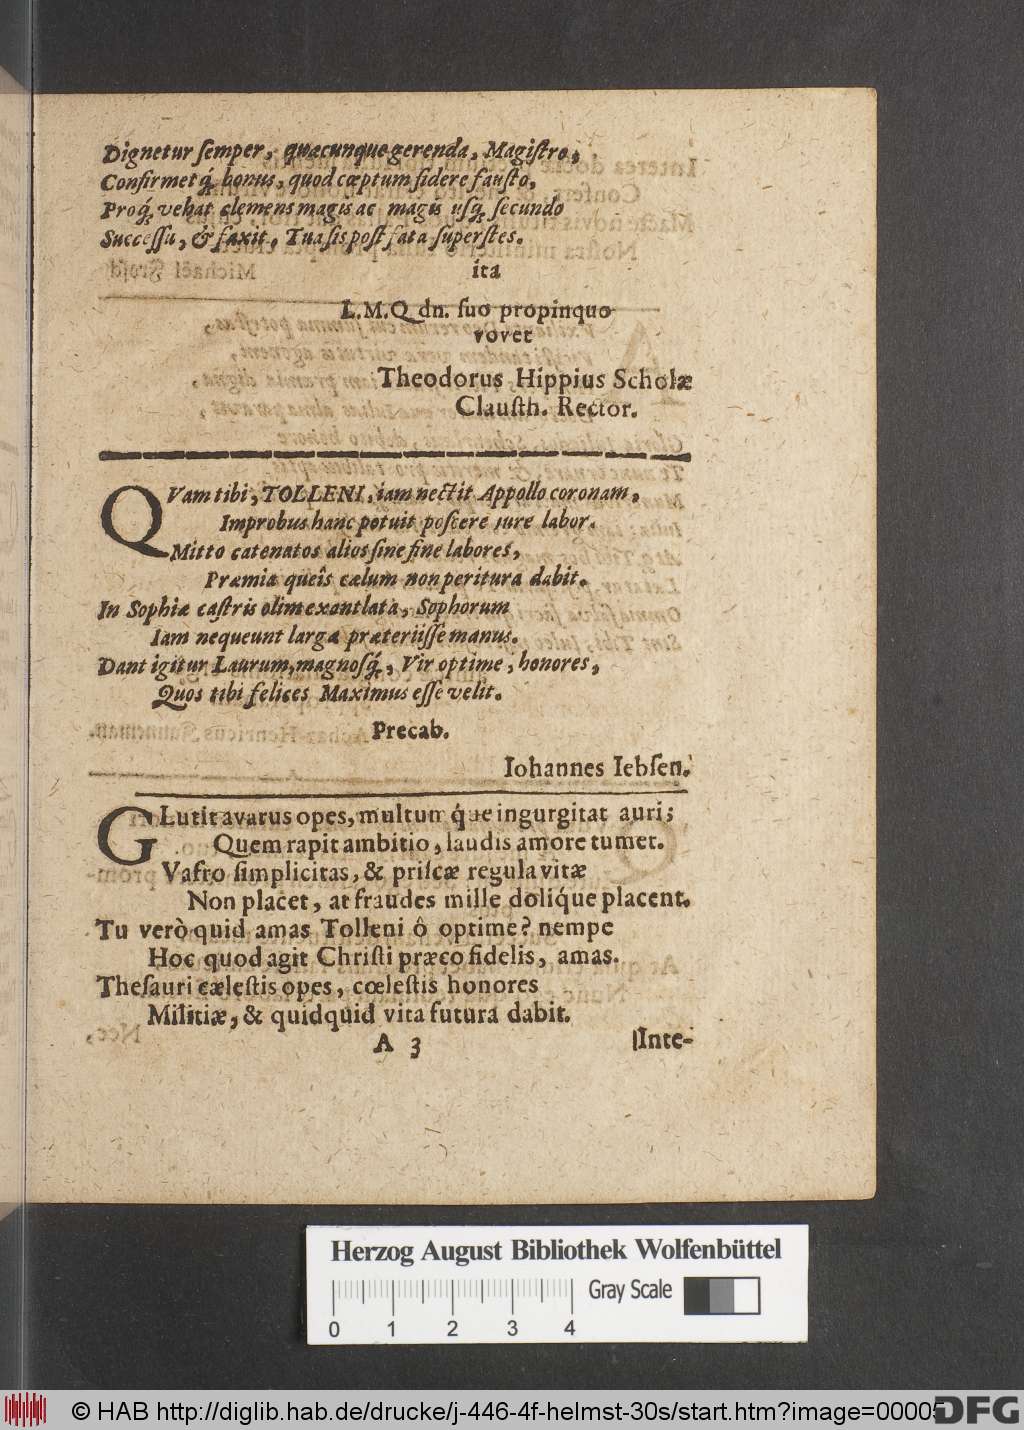 Dignetur ſemper, quacunque gerenda, Magiſtro,
Confirmetq́, bonus, quod cœptum ſidere fauſto,
Proq́, vehat clemens magis ac magis uſq́, ſecundo
Succeſſu, & faxit, Tua ſis poſt fata ſuperſtes.
ita
L.M.Q dn. ſuo propinquo
vovet
Theodorus Hippius Scholæ
Clauſth. Rector.
QVam tibi, TOLLENI, iam nectit Appollo coronam,
Improbus hanc potuit poſcere jure labor.
Mitto catenatos alios ſine fine labores,
Præmia queîs cælum non peritura dabit.
In Sophiæ caſtris olim exantlata, Sophorum
Iam nequeunt largæ præteriiſſe manus.
Dant igitur Laurum, magnoſq́, Vir optime, honores,
Quos tibi felices Maximus eſſe velit.
Precab.
Iohannes Iebſen.
GLutit avarus opes, multum q́ue ingurgitat auri;
Quem rapit ambitio, laudis amore tumet.
Vafro ſimplicitas, & priſcæ regula vitæ
Non placet, at fraudes mille doliq́ue placent.
Tu verò quid amas Tolleni ô optime? nempe
Hoc quod agit Chriſti præco fidelis, amas.
Theſauri cæleſtis opes, cœleſtis honores
Militiæ, & quidquid vita futura dabit.
A 3 Inte-
Herzog August Bibliothek Wolfenbüttel
Gray Scale
0 1 2 3 4
© HAB http://diglib.hab.de/drucke/j-446-4f-helmst-30s/start.htm?image=00005
DFG